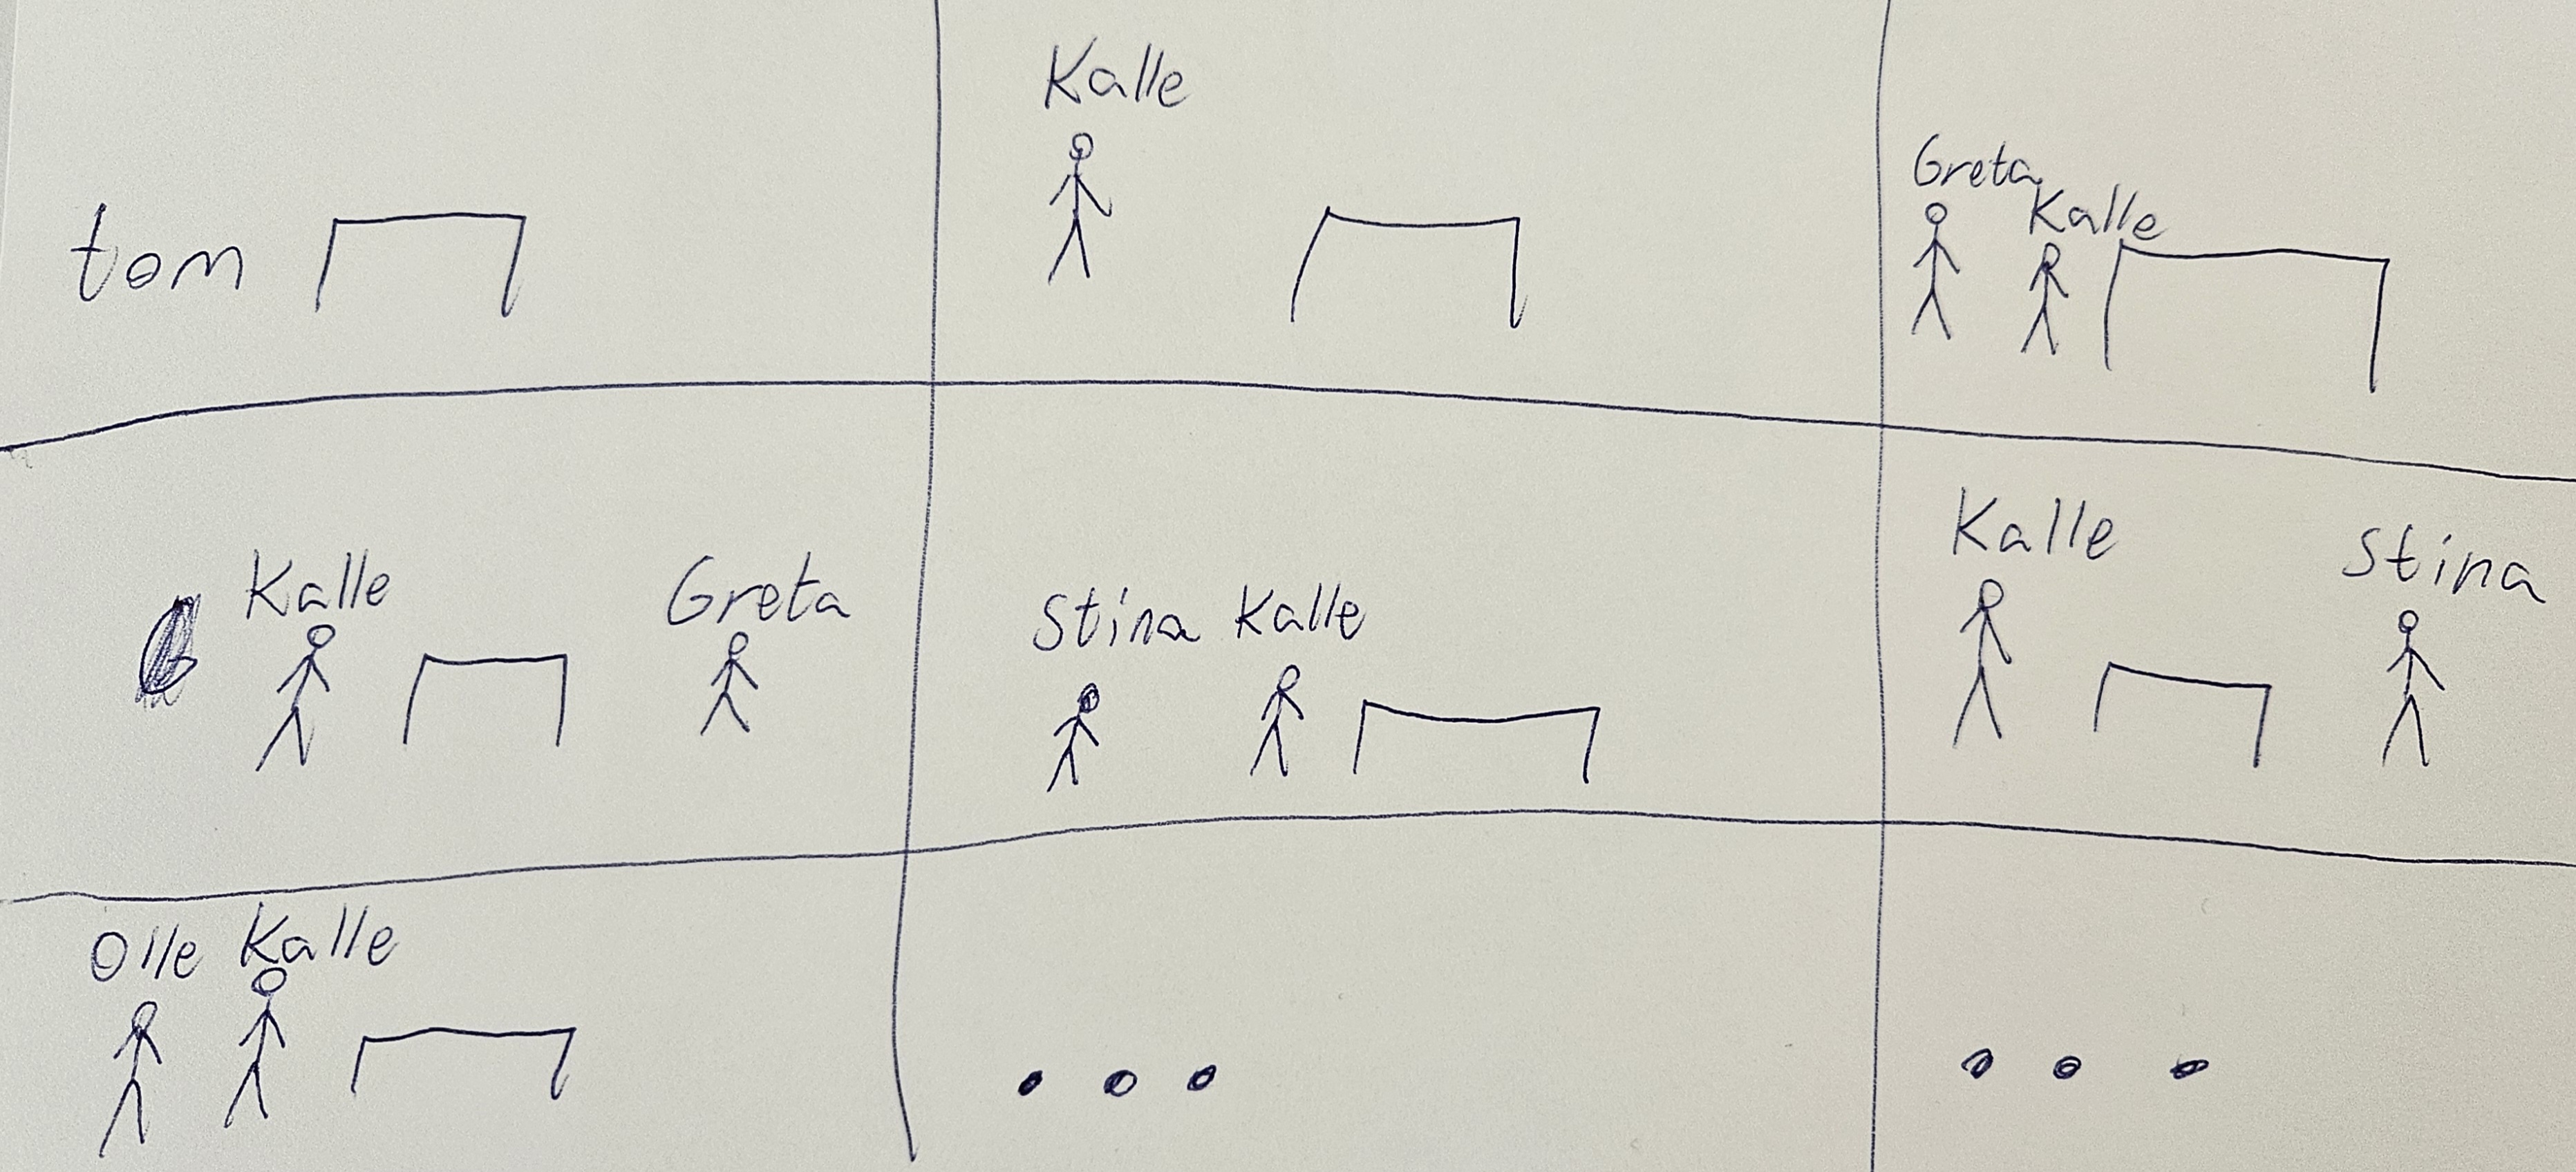 tom
Kalle
Greta
Kalle
Kalle Greta
Stina Kalle
Kalle Stina
Olle Kalle
• • •
• • •